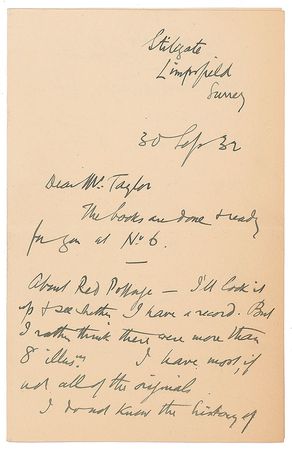 Stilegate
Limpsfield
Surrey
30 Sep 32
Dear Mr. Taylor
The books are done & ready
for you at No 6.
About Red Pottage — I'll look it
up & see whether I have a record. But
I rather think there were more than
8 illusns. I have most if
not all of the originals
I do not know the history of